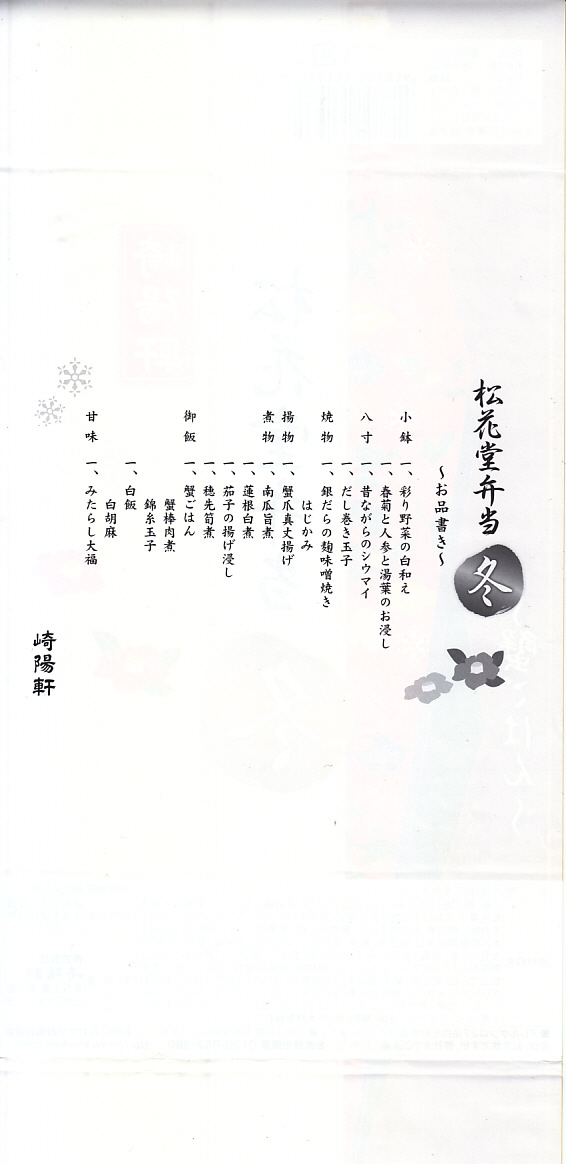 松花堂弁当 冬
〜お品書き〜
小鉢 一、彩り野菜の白和え
一、春菊と人参と湯葉のお浸し
八寸 一、昔ながらのシウマイ
一、だし巻き玉子
焼物 一、銀だらの麹味噌焼き
はじかみ
揚物 一、蟹爪真丈揚げ
煮物 一、南瓜旨煮
一、蓮根白煮
一、茄子の揚げ浸し
一、穂先筍煮
御飯 一、蟹ごはん
蟹棒肉煮
錦糸玉子
一、白飯
白胡麻
甘味 一、みたらし大福
崎陽軒